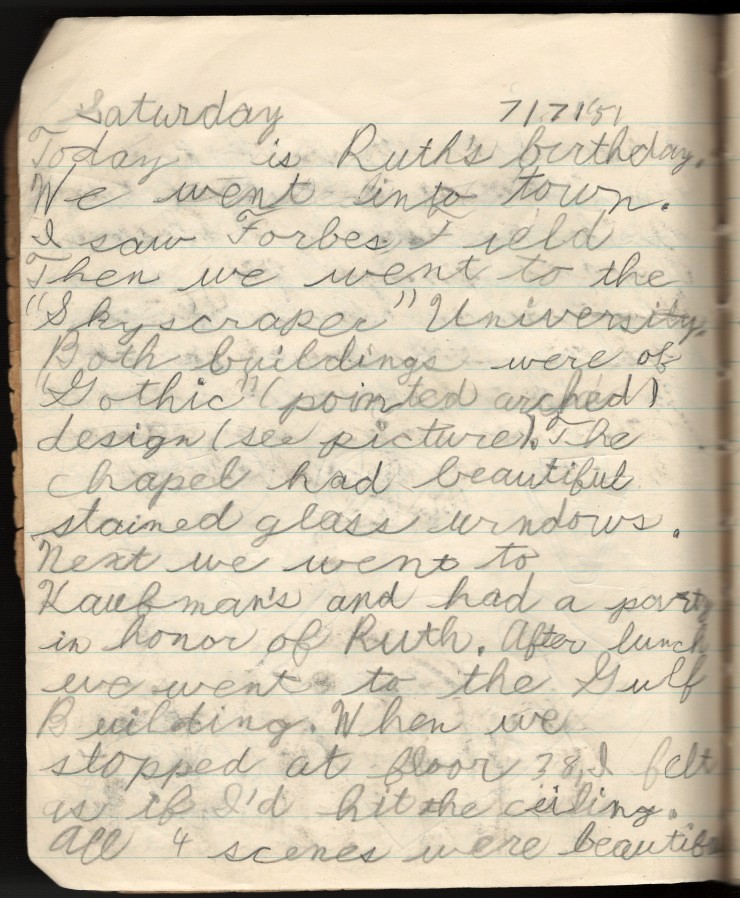 Saturday 7/7/'51
Today is Ruth's birthday.
We went into town.
I saw Forbes Field
Then we went to the
"Skyscraper" University.
Both buildings were of
"Gothic" (pointed arched)
design (see picture). The
chapel had beautiful
stained glass windows.
Next we went to
Kaufman's and had a party
in honor of Ruth. After lunch
we went to the Gulf
Building. When we
stopped at floor 38, I felt
as if I'd hit the ceiling.
All 4 scenes were beautif